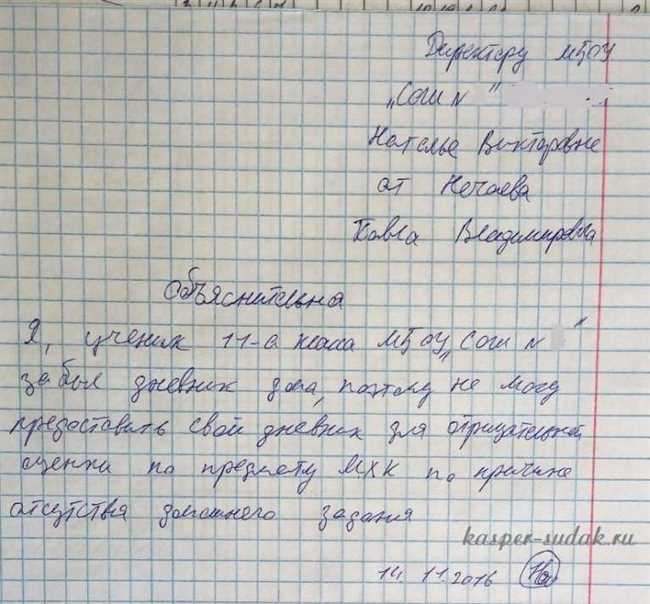 Директору МБОУ
"Сош №"
Наталье Викторовне
от Нечаева
Павла Владимировича
Объяснительна
Я, ученик 11-а класса МБОУ "Сош №"
забыл дневник дома, поэтому не могу
предоставить свой дневник для отрицательной
оценки по предмету МХК по причине
отсутствия домашнего задания
kasper-sudak.ru
14.11.2016